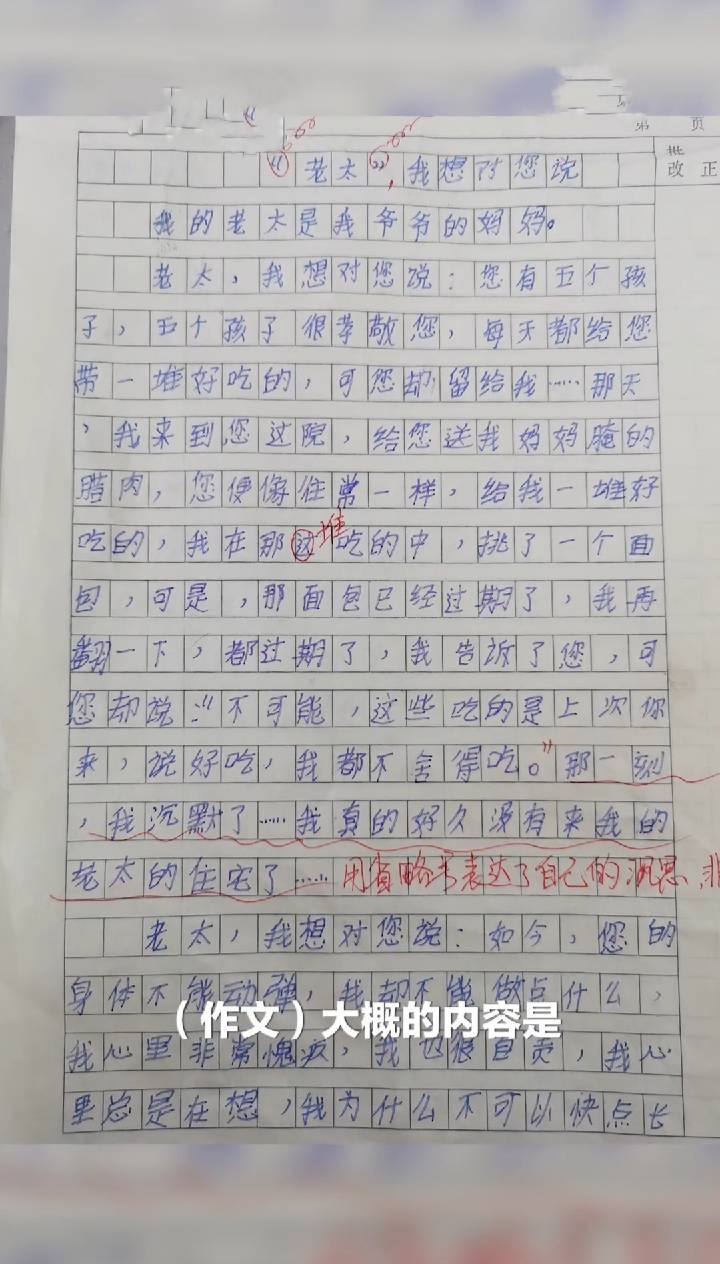 第 页
批
改正
“老太”，我想对您说
我的老太是我爷爷的妈妈。
老太，我想对您说：您有五个孩
子，五个孩子很孝敬您，每天都给您
带一堆好吃的，可您却留给我……那天
，我来到您过院，给您送我妈妈腌的
腊肉，您便像往常一样，给我一堆好
吃的，我在那这堆吃的中，挑了一个面
包，可是，那面包已经过期了，我再
翻一下，都过期了，我告诉了您，可
您却说：“不可能，这些吃的是上次你
来，说好吃，我都不舍得吃。”那一刻
，我沉默了……我真的好久没有来我的
老太的住宅了……用省略号表达了自己的沉思，非
老太，我想对您说：如今，您的
身体不能动弹，我却不能做点什么，
（作文）大概的内容是
我心里非常愧疚，我也很自责，我心
里总是在想，我为什么不可以快点长